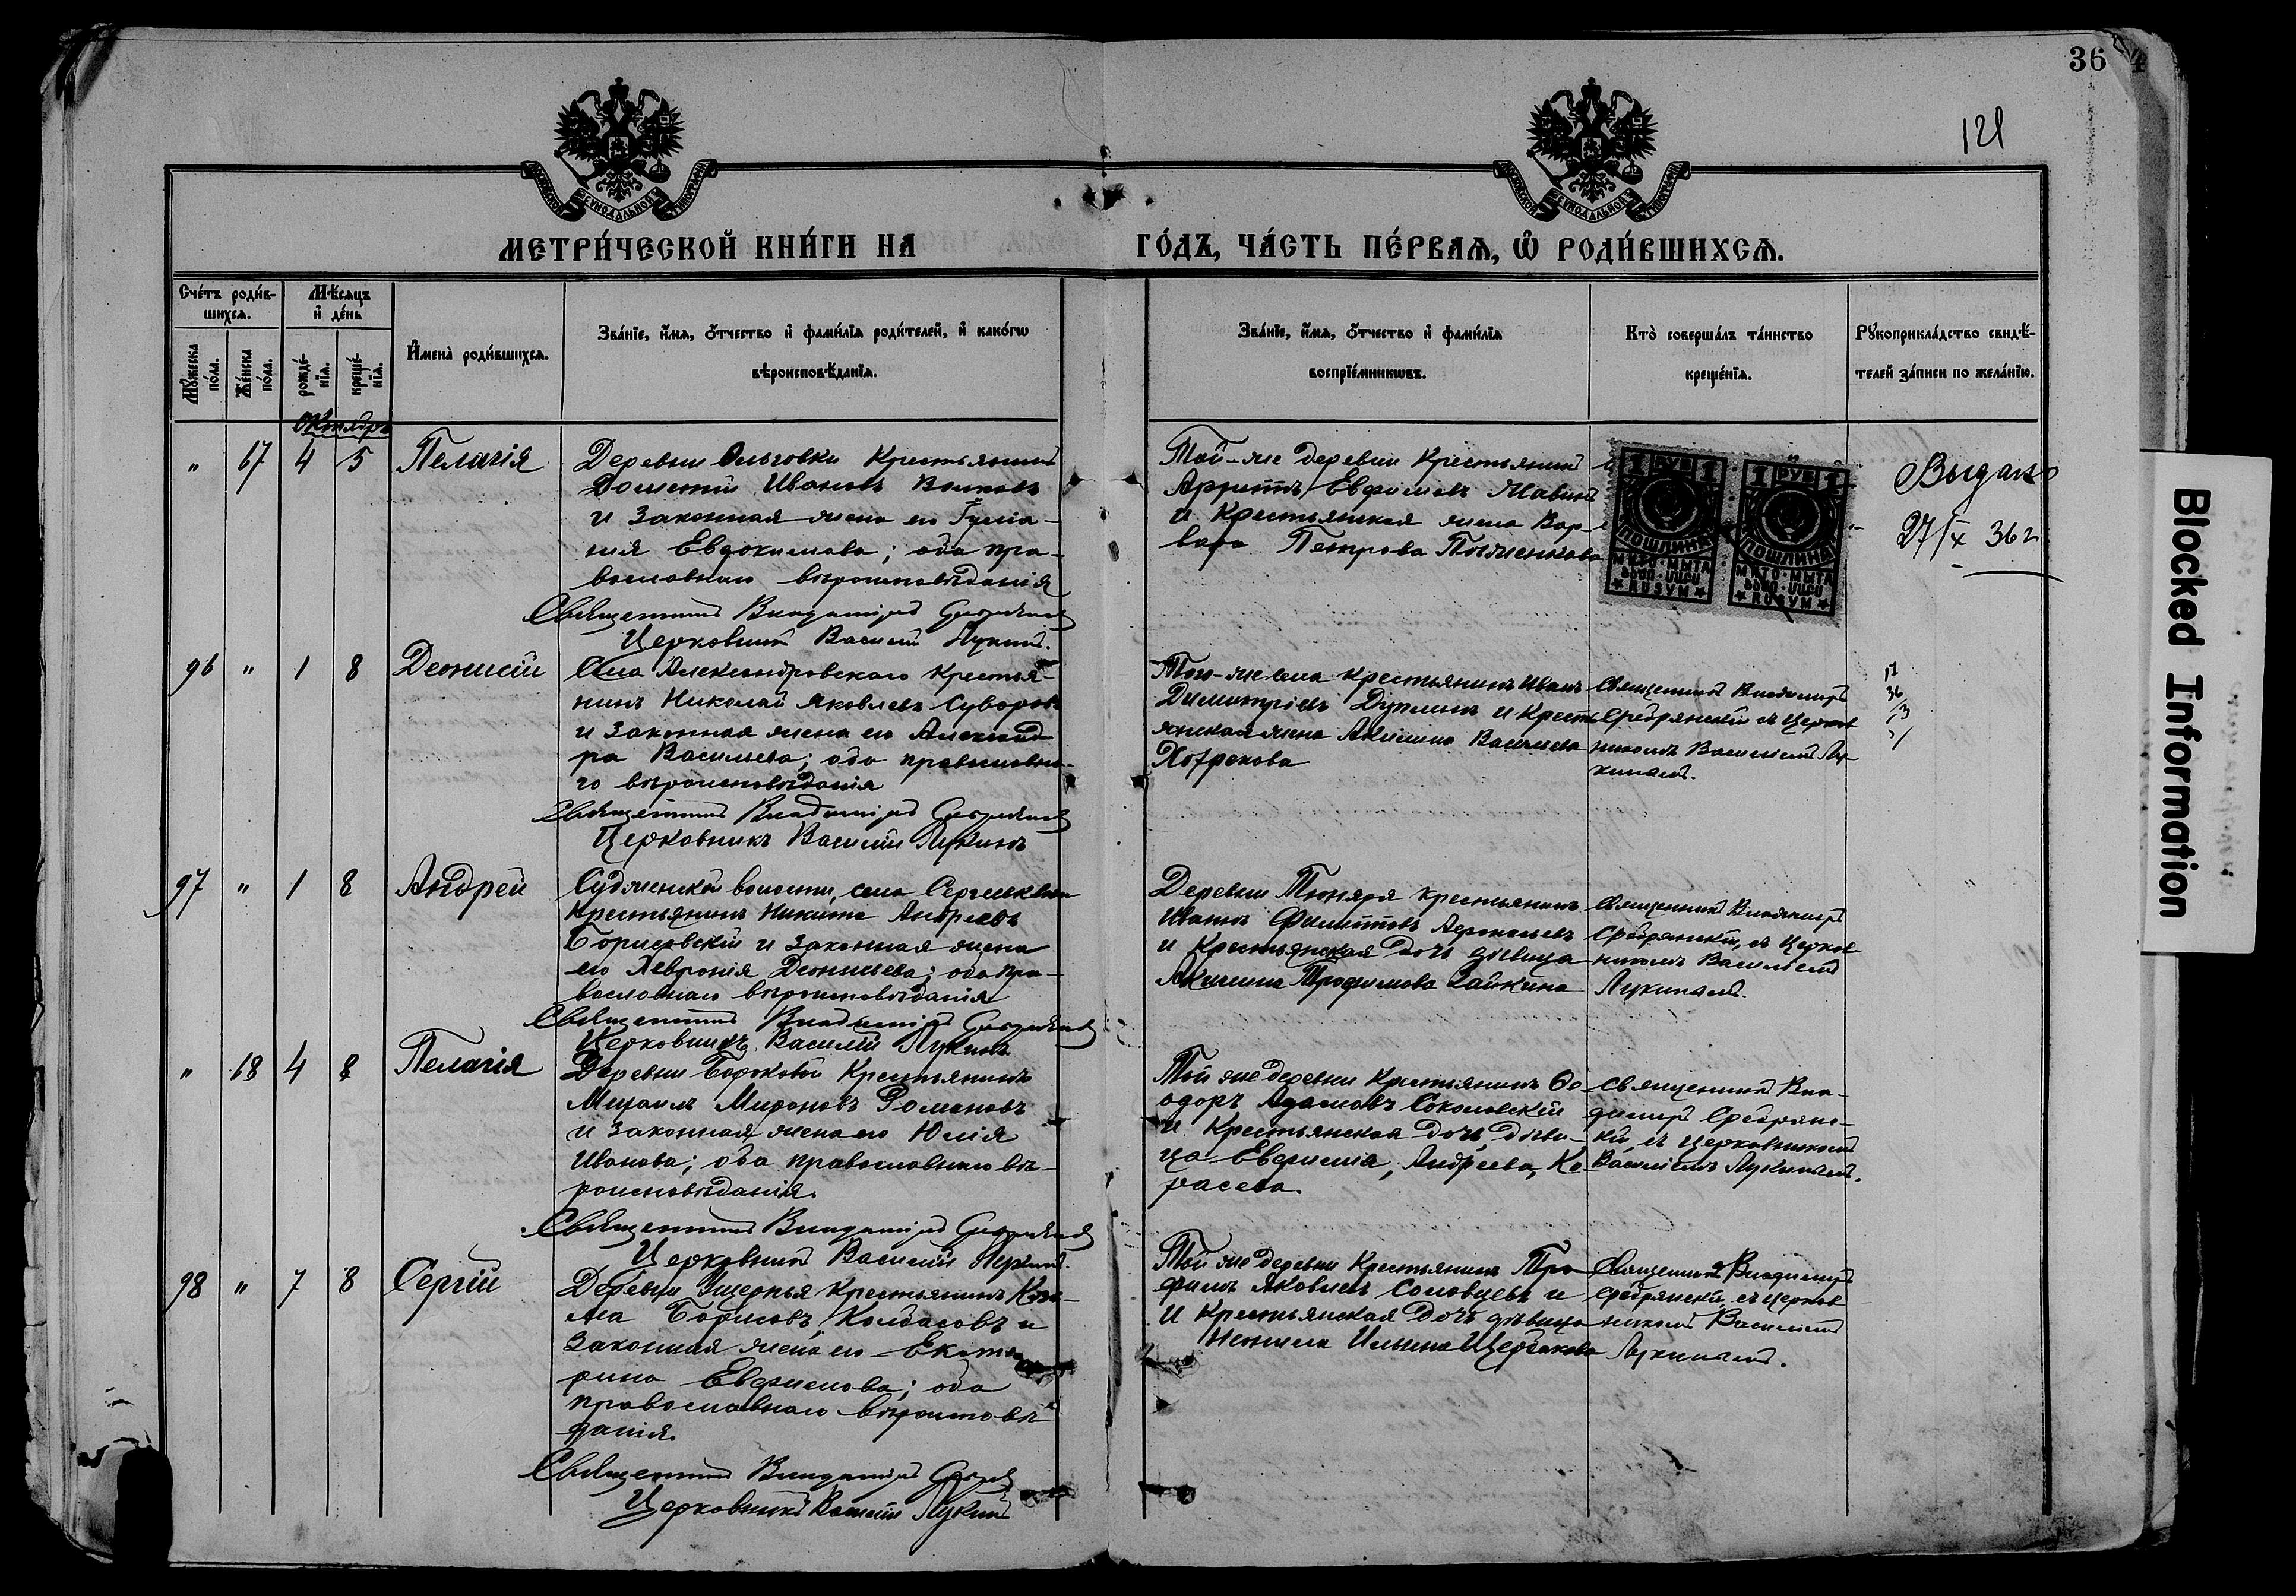 36 4
121
МЕТРИ́ЧЕСКОЙ КНИ́ГИ НА
ГО́ДЪ, ЧА́СТЬ ПЕ́РВАѦ, Ѽ РОДИ́ВШИХСѦ.
Сче́тъ роди́в-
шихсѧ.
Мꙋ́жеска по́ла.
Же́нска по́ла.
Мѣ́сѧцъ и҆ де́нь
рожде́-
нїѧ.
креще́-
нїѧ.
И҆мена̀ роди́вшихсѧ.
Зва́нїе, и҆́мѧ, ѻ҆́тчество и҆ фами́лїѧ роди́телей, и҆ како́гѡ
вѣроисповѣ́данїѧ.
Зва́нїе, и҆́мѧ, ѻ҆́тчество и҆ фами́лїѧ
воспрїе́мникѡвъ.
Кто̀ соверша́лъ та́инство
креще́нїѧ.
Рꙋкоприкла́дство свидѣ́-
телей за́писи по жела́нїю.
Октябрь
" 67 4 5 Пелагія
Деревни Ольговки Крестьянинъ
Иванов Волковъ
и законная жена его
нія Евдокимова; оба пра-
вославнаго вѣроисповѣданія
Священникъ Владиміръ Сребрянскій
Церковникъ Василій Лукинъ.
Той-же деревни Крестьянинъ
Евфимовъ
и Крестьянская жена Вар-
вара Петрова
1 РУБ 1
ПОШЛИНА
МЫТА
RUSVM
1 РУБ 1
ПОШЛИНА
МЫТА
RUSVM
Выдано
27/IX 36 г
96 " 1 8 Деонисій
Села Александровскаго Крестья-
нинъ Николай Яковлевъ Суворовъ
и законная жена его Александ
ра Васильева; оба православна-
го вѣроисповѣданія
Священникъ Владиміръ Сребрянскій
Церковникъ Василій Лукинъ
Того-же села Крестьянинъ Иванъ
Димитріевъ и Кресть
янская жена Акилина Васильева
Священникъ Владиміръ
Сребрянскій съ Церков
никомъ Василіемъ Лу-
кинымъ.
97 " 1 8 Андрей
Судженской волости, села
Крестьянинъ Никита Андреевъ
Борисовскій и законная жена
его Хевронія Деонисьева; оба пра-
вославнаго вѣроисповѣданія
Священникъ Владиміръ Сребрянскій
Церковникъ Василій Лукинъ
Деревни Тюняря крестьянинъ
Иванъ Филипповъ
и Крестьянская дочь дѣвица
Акилина Трофимова Зайкина
Священникъ Владиміръ
Сребрянскій, съ Церков-
никомъ Василіемъ
Лукинымъ.
" 68 4 8 Пелагія
Деревни Борковой Крестьянинъ
Михаилъ Мироновъ Романовъ
и законная жена его Юлія
Иванова; оба православнаго вѣ-
роисповѣданія.
Священникъ Владиміръ Сребрянскій
Церковникъ Василій Лукинъ.
Той же деревни Крестьянинъ Ѳе-
одоръ Адамовъ Соколовскій
и Крестьянская дочь, дѣви-
ца Евфимія, Андреева, Ка-
расева.
Священникъ Вла-
димиръ Сребрянс-
кій, съ Церковникомъ
Василіемъ Лукинымъ.
98 " 7 8 Сергій
Деревни Ущерпья Крестьянинъ Коз-
ма Борисовъ Колбасовъ и
законная жена его Екате
рина Евфимова; оба
православнаго вѣроисповѣ
данія.
Священникъ Владиміръ
Церковникъ Василій Лукинъ
Той же деревни Крестьянинъ Тро
фимъ Яковлевъ Соловцевъ и
и Крестьянская дочь дѣвица
Неонила Ильина Щербакова
Священникъ Владимиръ
Сребрянскій, съ Церков
никомъ Василіемъ
Лукинымъ.
Blocked Information